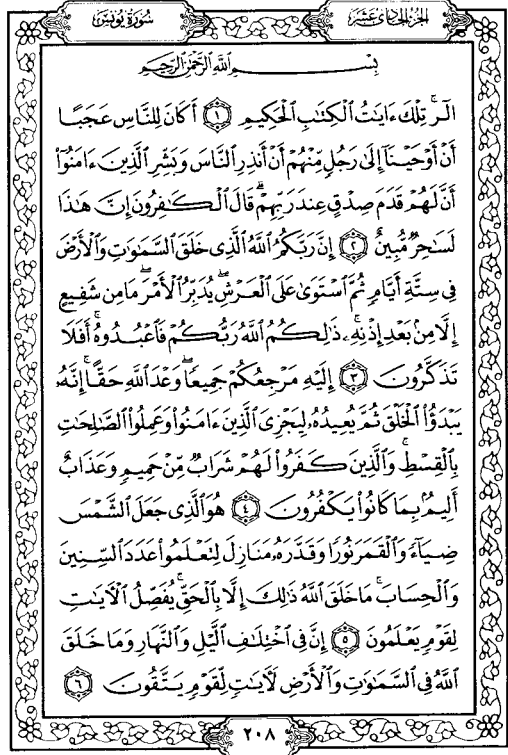 الجزء الحادي عشر
سورة يونس
بسم الله الرحمن الرحيم
الٓر ۚ تِلْكَ ءَايَٰتُ ٱلْكِتَٰبِ ٱلْحَكِيمِ ١ أَكَانَ لِلنَّاسِ عَجَبًا
أَنْ أَوْحَيْنَآ إِلَىٰ رَجُلٍ مِّنْهُمْ أَنْ أَنذِرِ ٱلنَّاسَ وَبَشِّرِ ٱلَّذِينَ ءَامَنُوٓا۟
أَنَّ لَهُمْ قَدَمَ صِدْقٍ عِندَ رَبِّهِمْ ۗ قَالَ ٱلْكَٰفِرُونَ إِنَّ هَٰذَا
لَسَٰحِرٌ مُّبِينٌ ٢ إِنَّ رَبَّكُمُ ٱللَّهُ ٱلَّذِى خَلَقَ ٱلسَّمَٰوَٰتِ وَٱلْأَرْضَ
فِى سِتَّةِ أَيَّامٍ ثُمَّ ٱسْتَوَىٰ عَلَى ٱلْعَرْشِ ۖ يُدَبِّرُ ٱلْأَمْرَ ۖ مَا مِن شَفِيعٍ
إِلَّا مِنۢ بَعْدِ إِذْنِهِۦ ۚ ذَٰلِكُمُ ٱللَّهُ رَبُّكُمْ فَٱعْبُدُوهُ ۚ أَفَلَا
تَذَكَّرُونَ ٣ إِلَيْهِ مَرْجِعُكُمْ جَمِيعًا ۖ وَعْدَ ٱللَّهِ حَقًّا ۚ إِنَّهُۥ
يَبْدَؤُا۟ ٱلْخَلْقَ ثُمَّ يُعِيدُهُۥ لِيَجْزِىَ ٱلَّذِينَ ءَامَنُوا۟ وَعَمِلُوا۟ ٱلصَّٰلِحَٰتِ
بِٱلْقِسْطِ ۚ وَٱلَّذِينَ كَفَرُوا۟ لَهُمْ شَرَابٌ مِّنْ حَمِيمٍ وَعَذَابٌ
أَلِيمٌۢ بِمَا كَانُوا۟ يَكْفُرُونَ ٤ هُوَ ٱلَّذِى جَعَلَ ٱلشَّمْسَ
ضِيَآءً وَٱلْقَمَرَ نُورًا وَقَدَّرَهُۥ مَنَازِلَ لِتَعْلَمُوا۟ عَدَدَ ٱلسِّنِينَ
وَٱلْحِسَابَ ۚ مَا خَلَقَ ٱللَّهُ ذَٰلِكَ إِلَّا بِٱلْحَقِّ ۚ يُفَصِّلُ ٱلْءَايَٰتِ
لِقَوْمٍ يَعْلَمُونَ ٥ إِنَّ فِى ٱخْتِلَٰفِ ٱلَّيْلِ وَٱلنَّهَارِ وَمَا خَلَقَ
ٱللَّهُ فِى ٱلسَّمَٰوَٰتِ وَٱلْأَرْضِ لَءَايَٰتٍ لِّقَوْمٍ يَتَّقُونَ ٦
٢٠٨